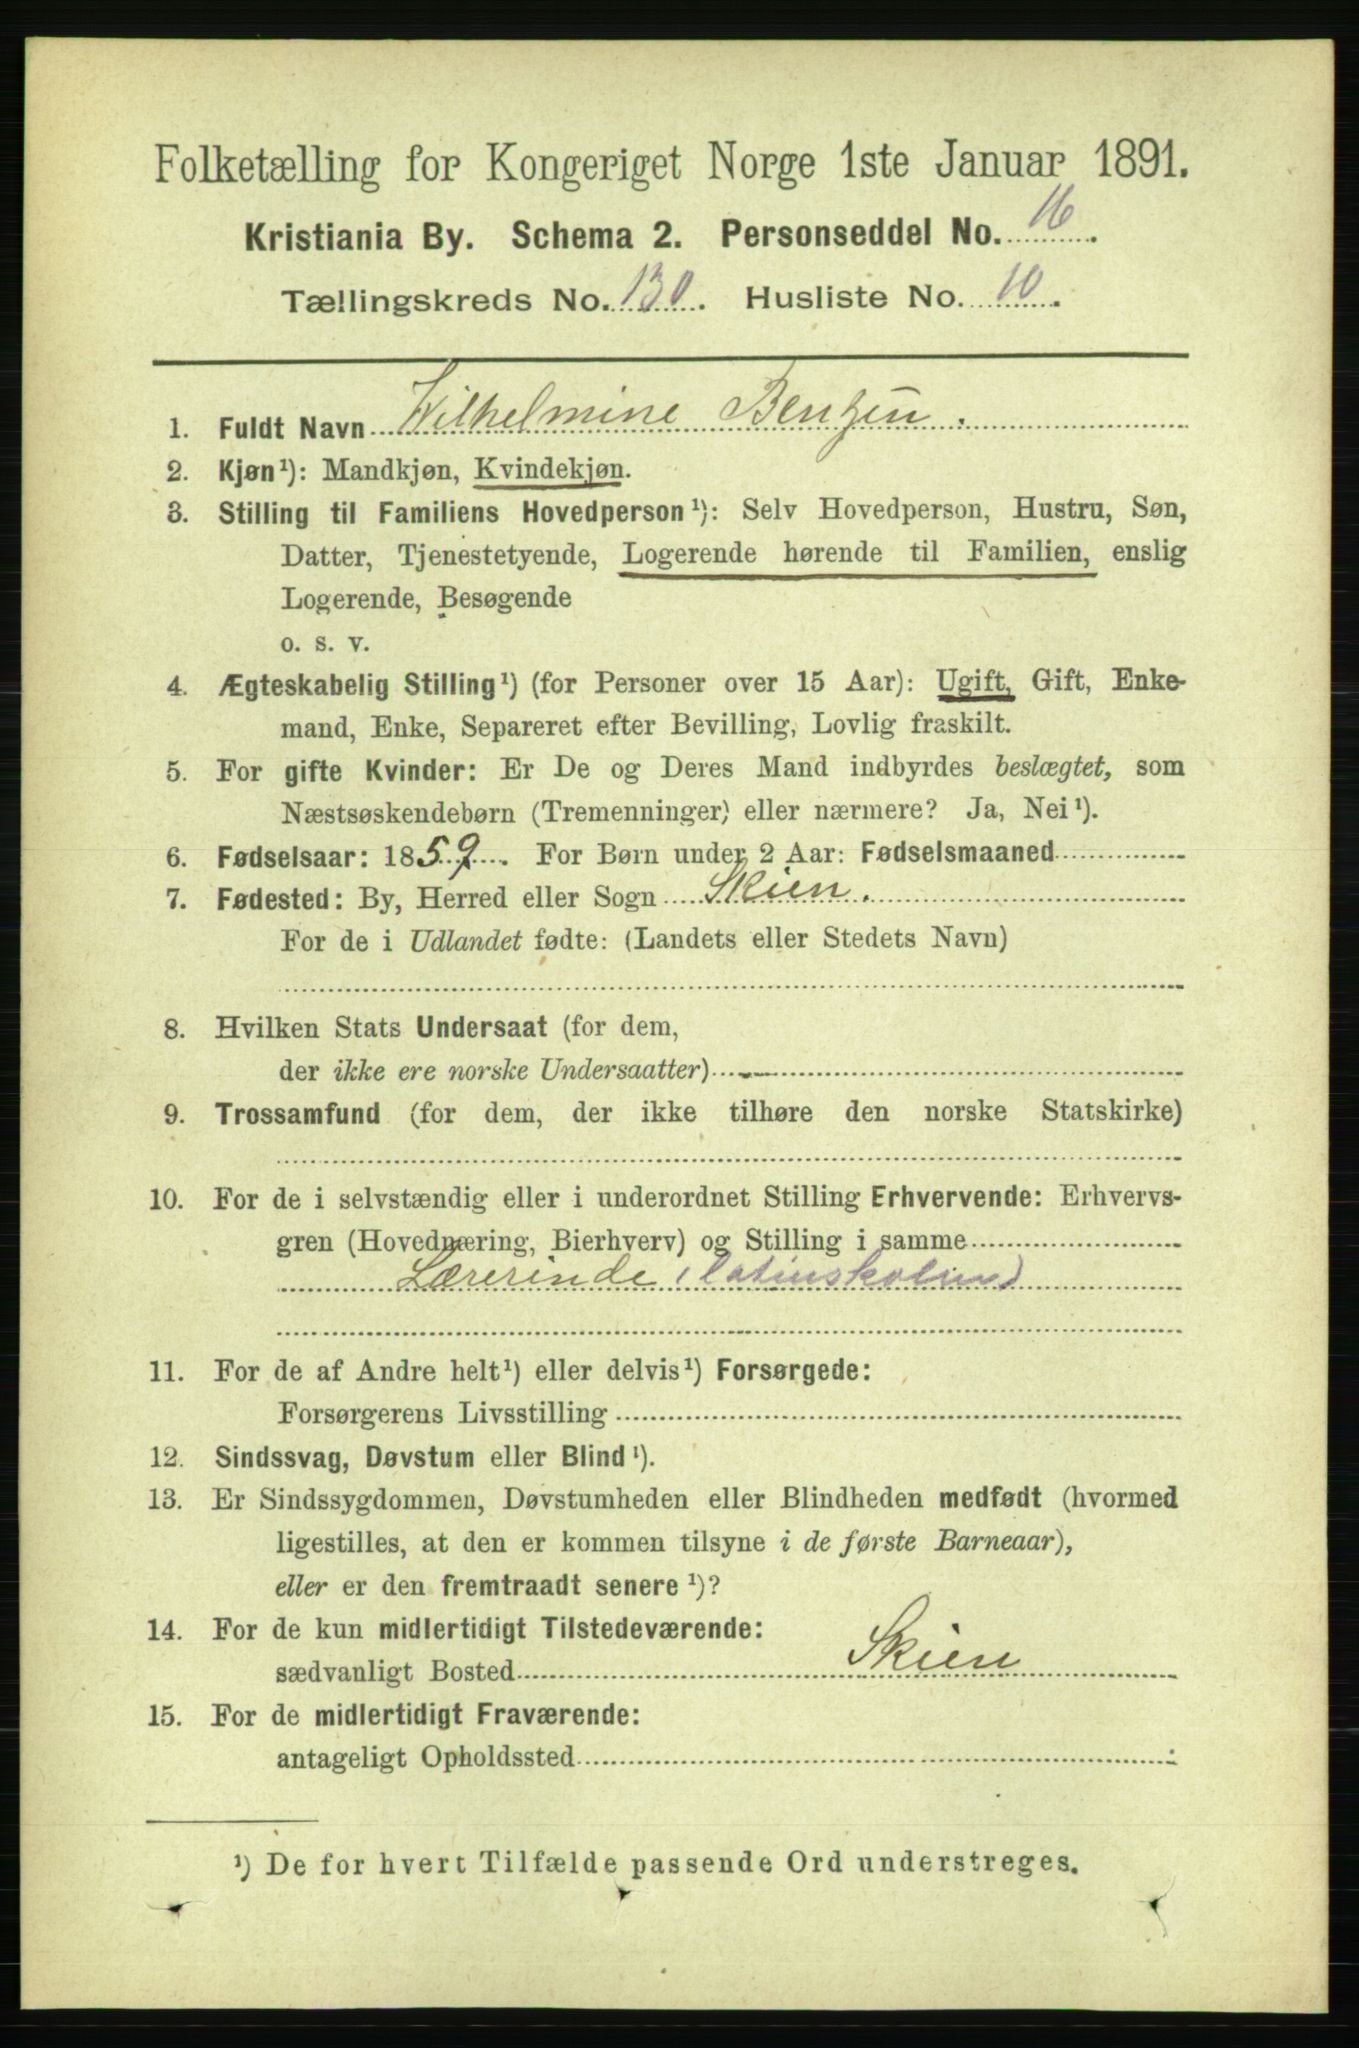 Folketælling for Kongeriget Norge 1ste Januar 1891.
Kristiania By. Schema 2. Personseddel No. 16.
Tællingskreds No. 130. Husliste No. 10.
1. Fuldt Navn Wilhelmine Bentzen.
2. Kjøn¹): Mandkjøn, Kvindekjøn.
3. Stilling til Familiens Hovedperson¹): Selv Hovedperson, Hustru, Søn,
Datter, Tjenestetyende, Logerende hørende til Familien, enslig
Logerende, Besøgende
o. s. v.
4. Ægteskabelig Stilling¹) (for Personer over 15 Aar): Ugift, Gift, Enke-
mand, Enke, Separeret efter Bevilling, Lovlig fraskilt.
5. For gifte Kvinder: Er De og Deres Mand indbyrdes beslægtet, som
Næstsøskendebørn (Tremenninger) eller nærmere? Ja, Nei¹).
6. Fødselsaar: 1859. For Børn under 2 Aar: Fødselsmaaned
7. Fødested: By, Herred eller Sogn Skien.
For de i Udlandet fødte: (Landets eller Stedets Navn)
8. Hvilken Stats Undersaat (for dem,
der ikke ere norske Undersaatter)
9. Trossamfund (for dem, der ikke tilhøre den norske Statskirke)
10. For de i selvstændig eller i underordnet Stilling Erhvervende: Erhvervs-
gren (Hovednæring, Bierhverv) og Stilling i samme
Lærerinde (latinskolen)
11. For de af Andre helt¹) eller delvis¹) Forsørgede:
Forsørgerens Livsstilling
12. Sindssvag, Døvstum eller Blind¹).
13. Er Sindssygdommen, Døvstumheden eller Blindheden medfødt (hvormed
ligestilles, at den er kommen tilsyne i de første Barneaar),
eller er den fremtraadt senere¹)?
14. For de kun midlertidigt Tilstedeværende:
sædvanligt Bosted Skien
15. For de midlertidigt Fraværende:
antageligt Opholdssted
¹) De for hvert Tilfælde passende Ord understreges.